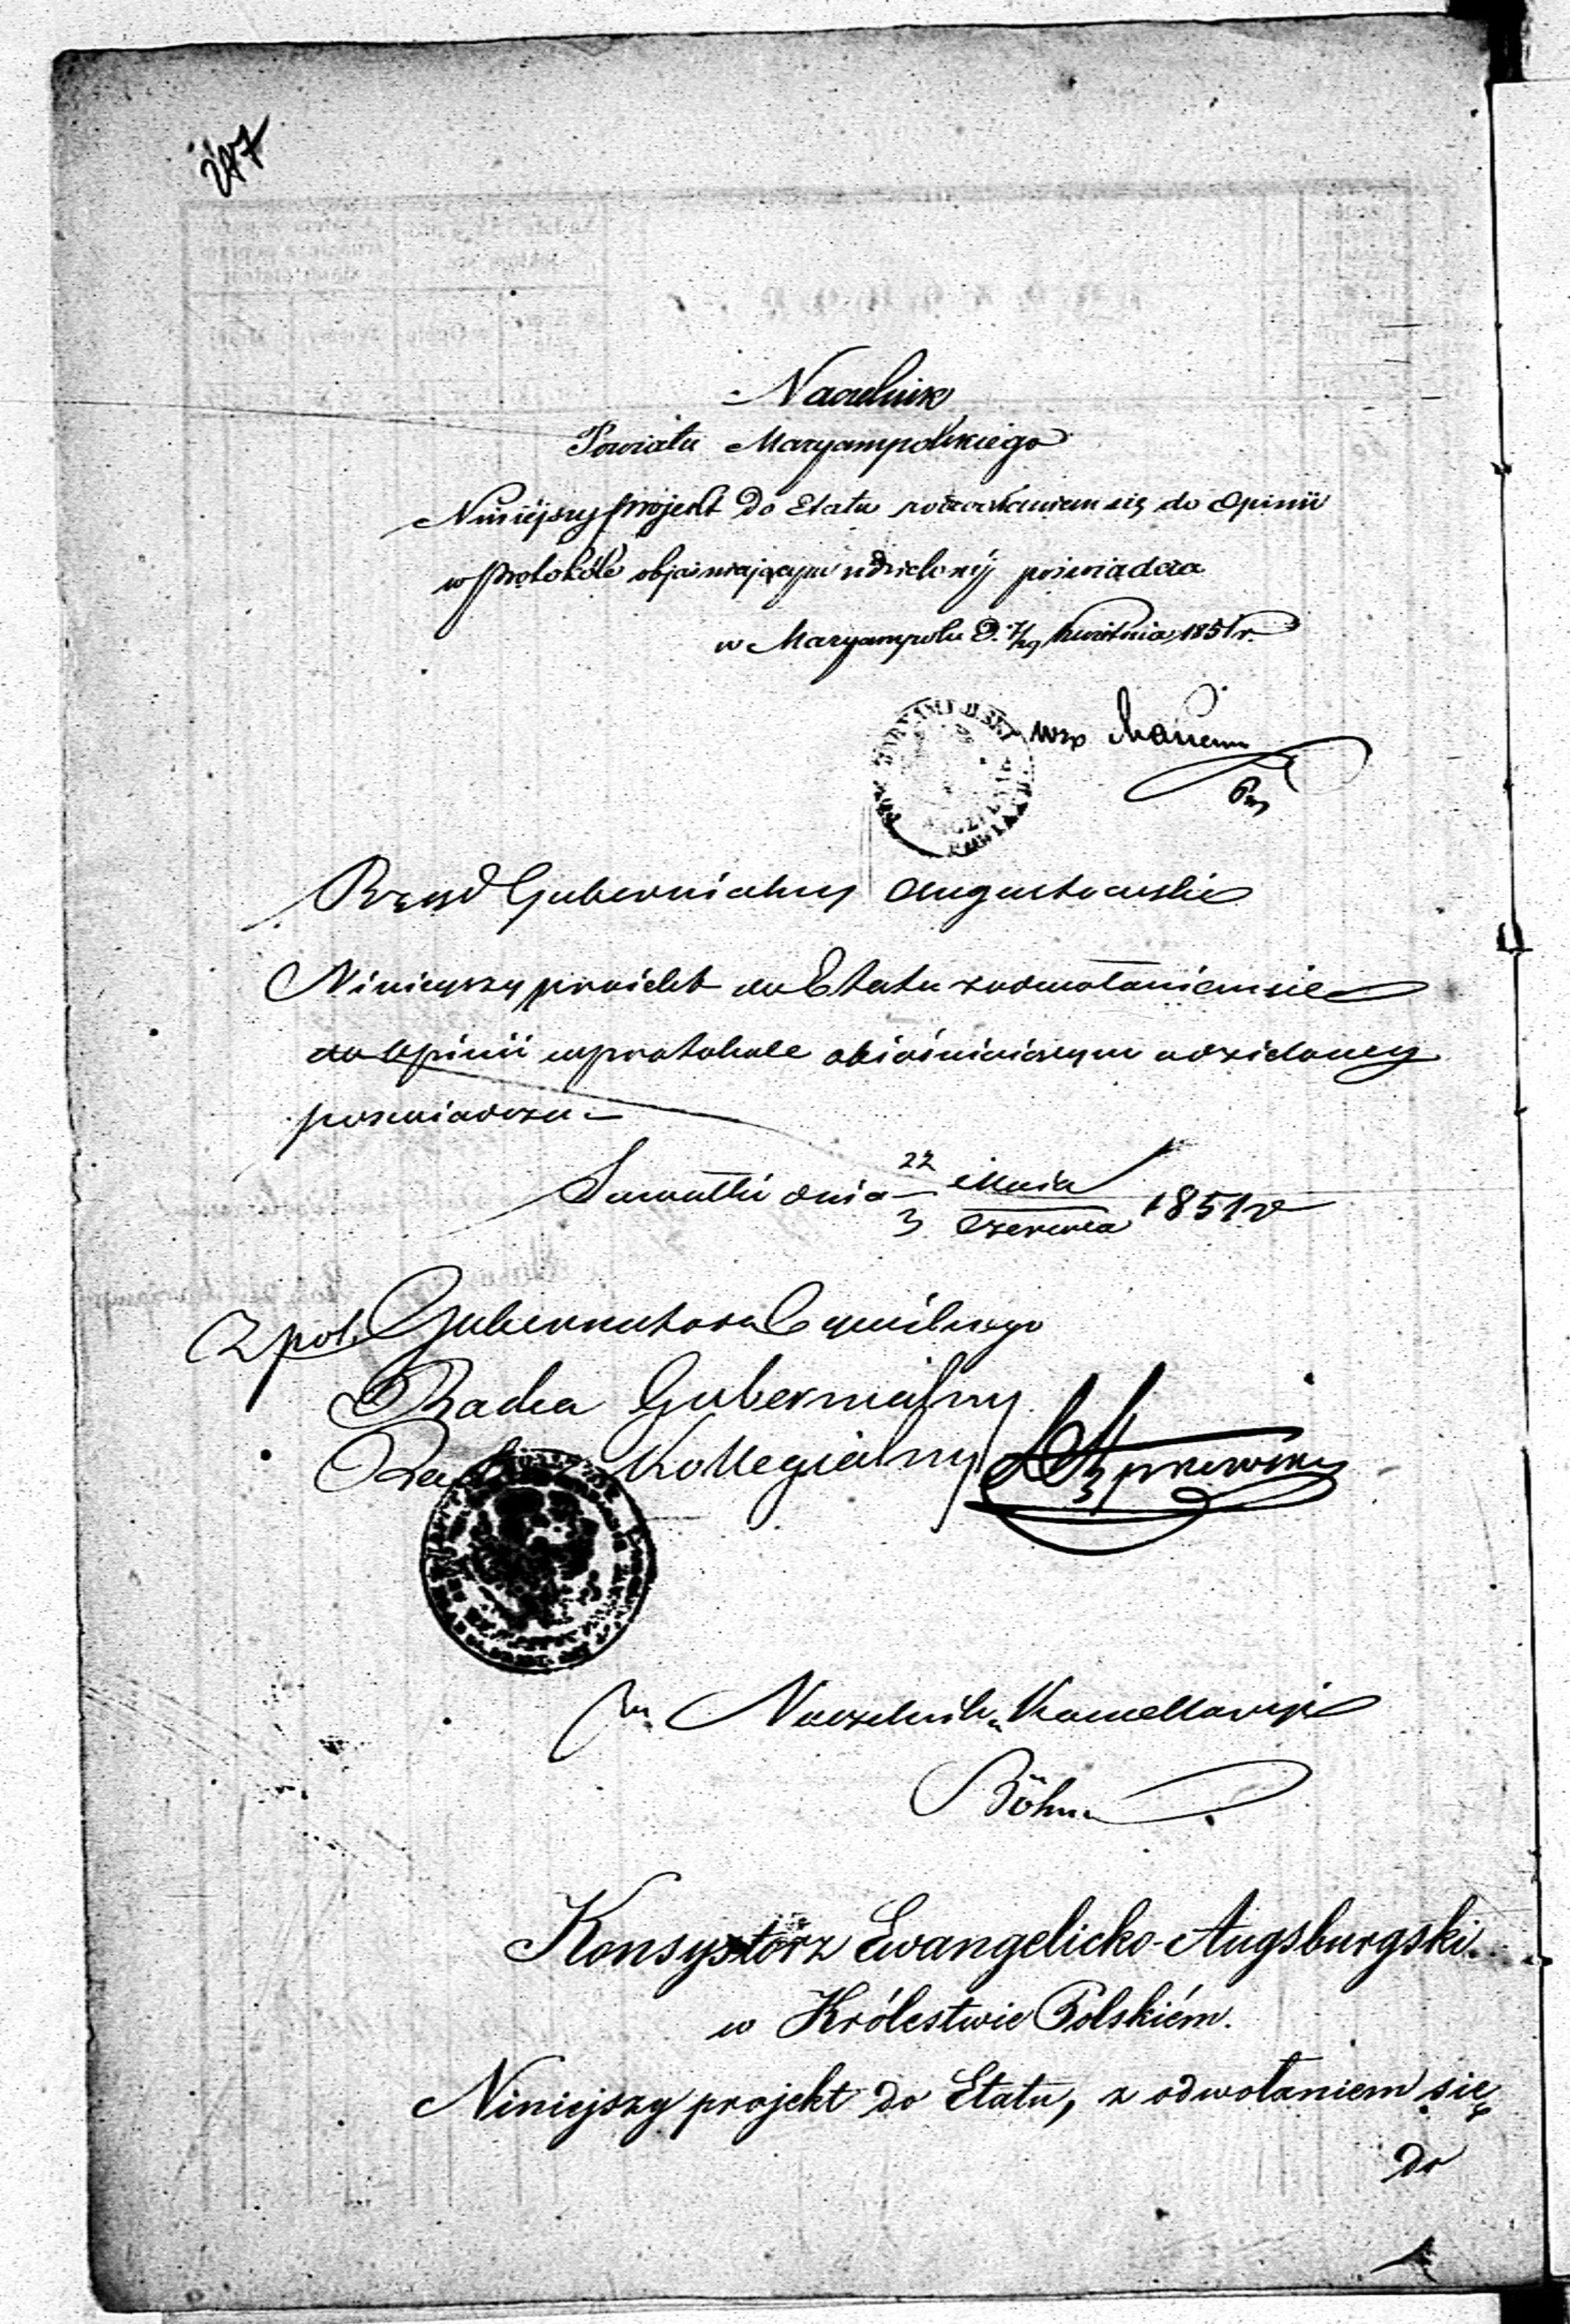 247
Naczelnik
Powiatu Maryampolskiego
Niniejszy projekt do Etatu z odwołaniem się do Opinii
w protokóle objaśniającym udzielonéj poświadcza
w Maryampolu D. 17/29 Kwietnia 1851 r.
Rząd Gubernialny Augustowski
Niniejszy proiekt do Etatu z odwołaniem się
do Opinii w protokole obiaśniaiącym udzieloney
poswiadcza
Suwałki dnia 22 Maja
3 Czerwca 1851 r
Z pol. Gubernatora Cywilnego
Radca Gubernialny
Radca Kollegialny
Naczelnik Kancellaryi
Böhm
Konsystorz Ewangelicko-Augsburgski
w Królestwie Polskiém.
Niniejszy projekt do Etatu, z odwołaniem się
do